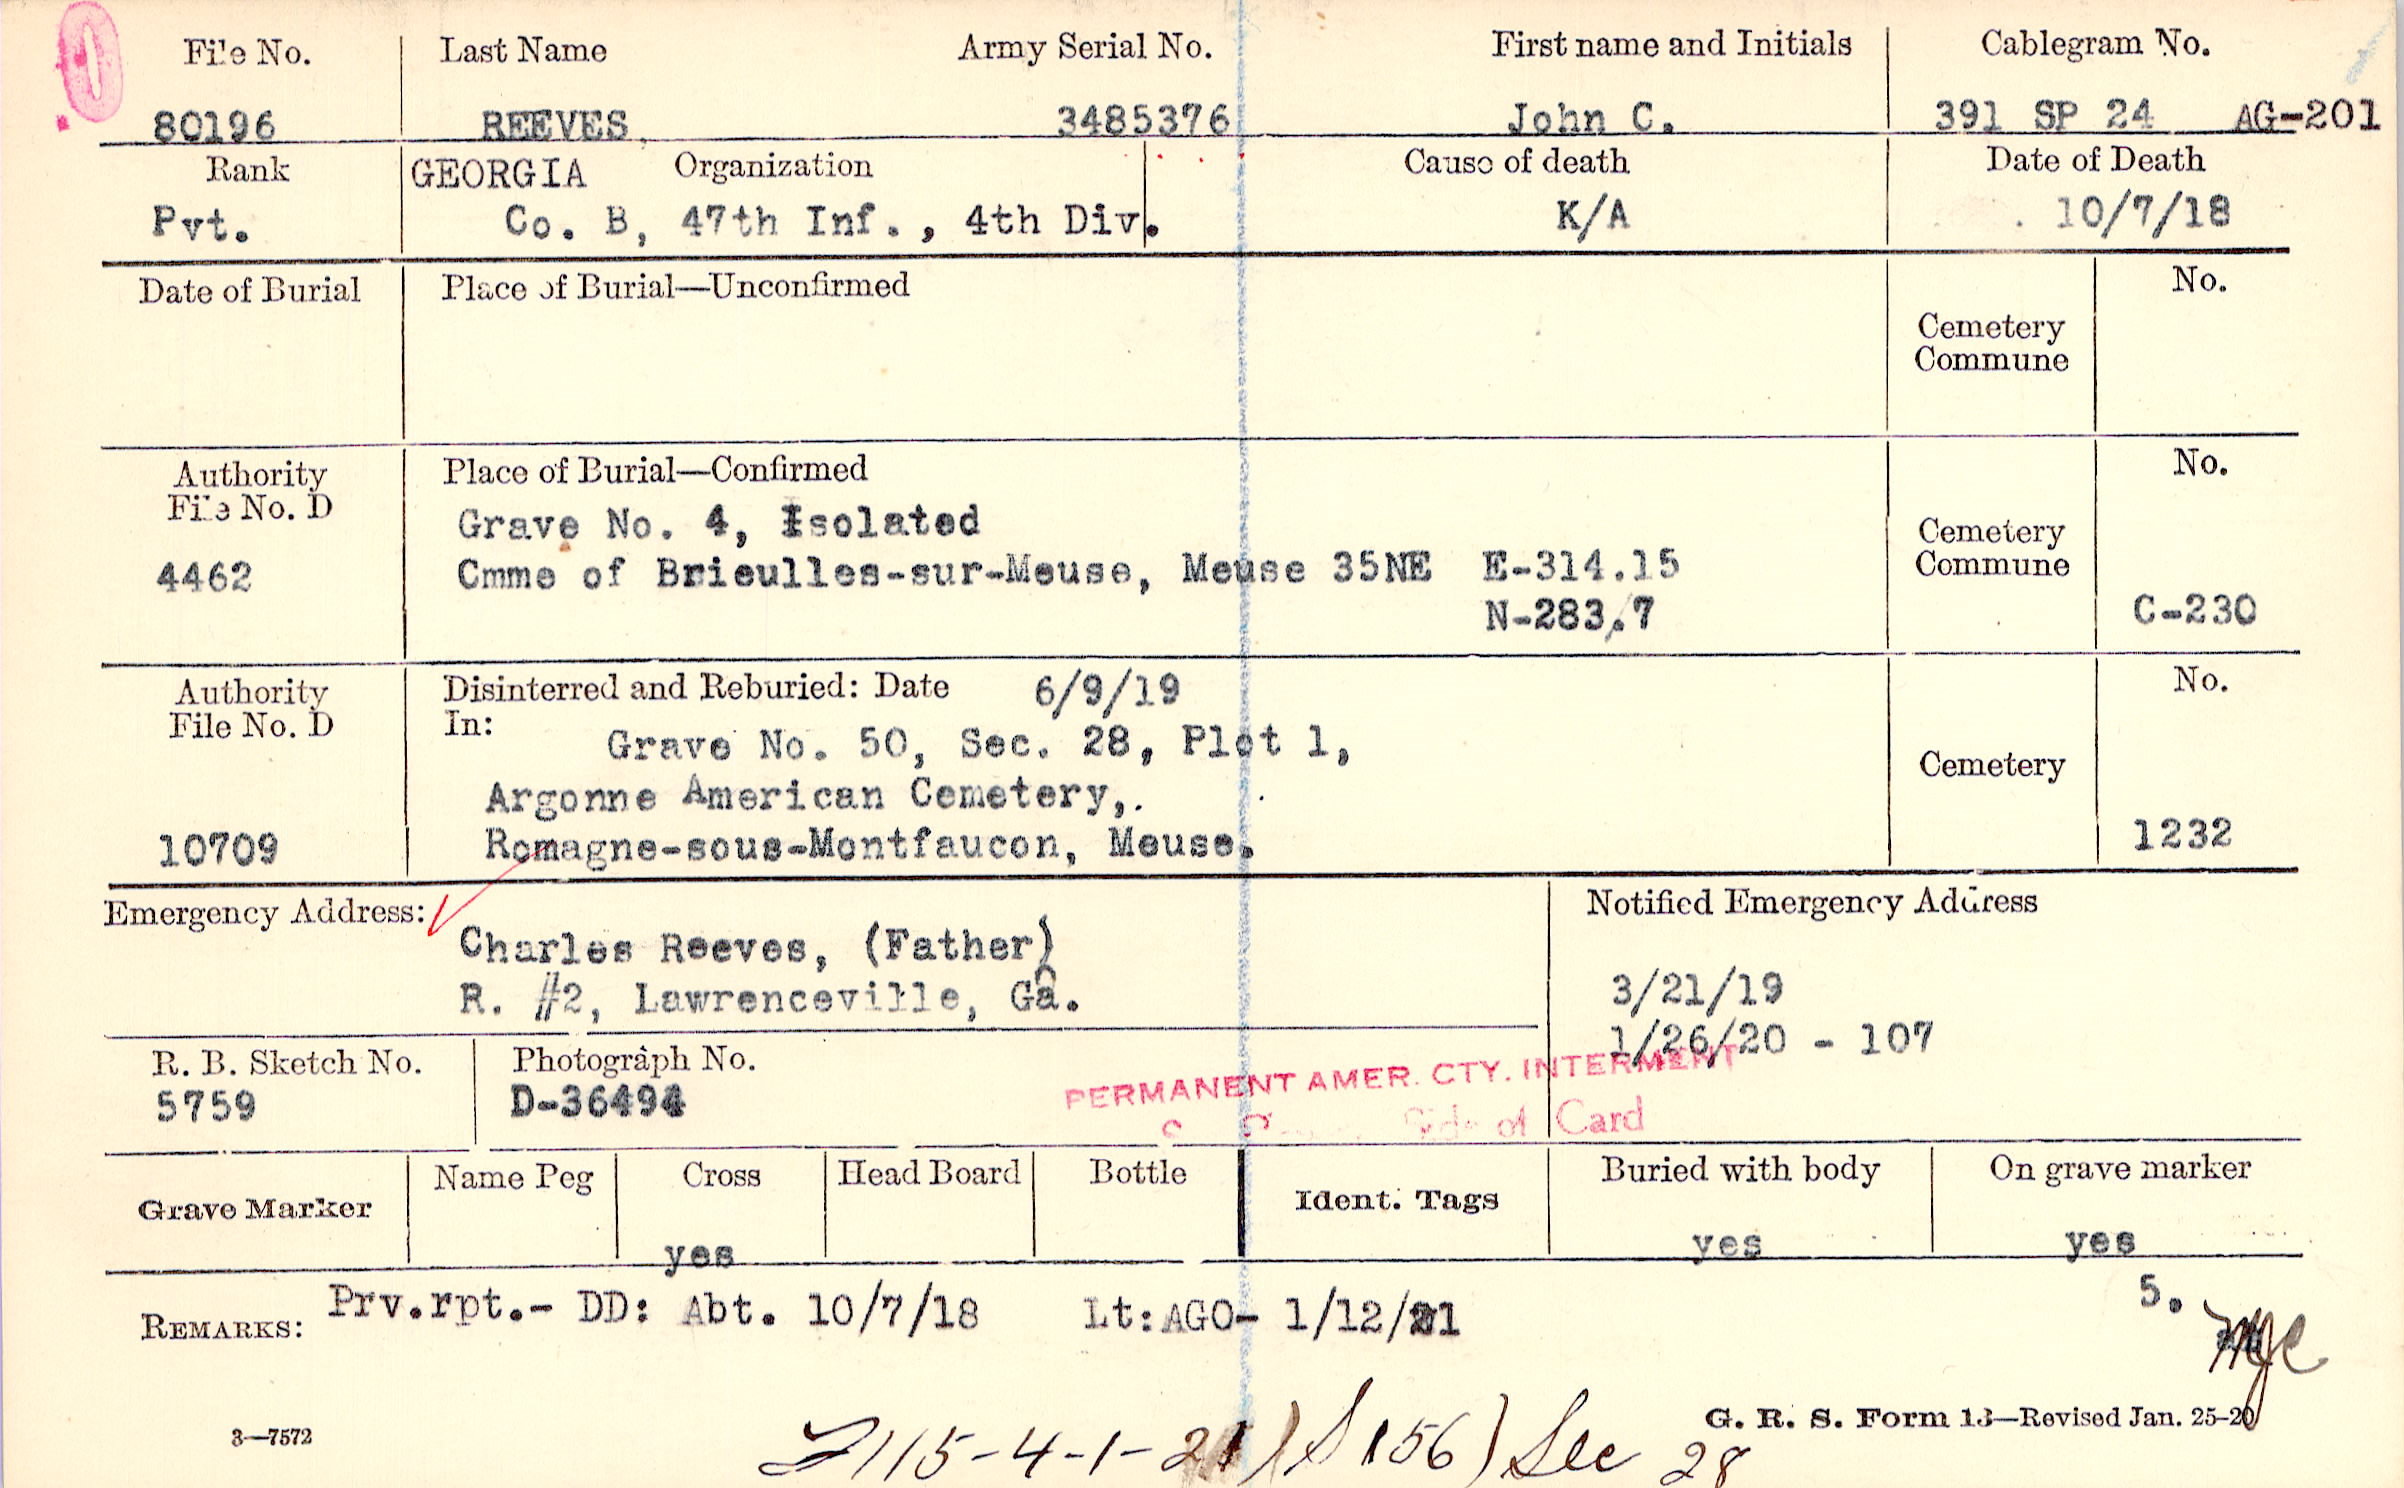 0
File No. Last Name Army Serial No. First name and Initials Cablegram No.
80196 REEVES, 3485376 John C. 391 SP 24 AG-201
Rank GEORGIA Organization Cause of death Date of Death
Pvt. Co. B, 47th Inf., 4th Div. K/A 10/7/18
Date of Burial Place of Burial—Unconfirmed No.
Cemetery
Commune
Authority Place of Burial—Confirmed No.
File No. D
Grave No. 4, Isolated
Cemetery
4462 Cmme of Brieulles-sur-Meuse, Meuse 35NE E-314.15 Commune
N-283.7 C-230
Authority Disinterred and Reburied: Date 6/9/19 No.
File No. D In:
Grave No. 50, Sec. 28, Plot 1,
Cemetery
Argonne American Cemetery,.
10709 Romagne-sous-Montfaucon, Meuse. 1232
Emergency Address: Notified Emergency Address
Charles Reeves, (Father)
R. #2, Lawrenceville, Ga. 3/21/19
1/26/20 - 107
R. B. Sketch No. Photograph No.
5759 D-36494
PERMANENT AMER. CTY. INTERMENT
Side of Card
Grave Marker Name Peg Cross Head Board Bottle Ident. Tags Buried with body On grave marker
yes yes yes
REMARKS: Prv.rpt.- DD: Abt. 10/7/18 Lt:AGO- 1/12/21 5.
3—7572 G. R. S. Form 13—Revised Jan. 25-20
115-4-1-21) (S 156) Sec 28